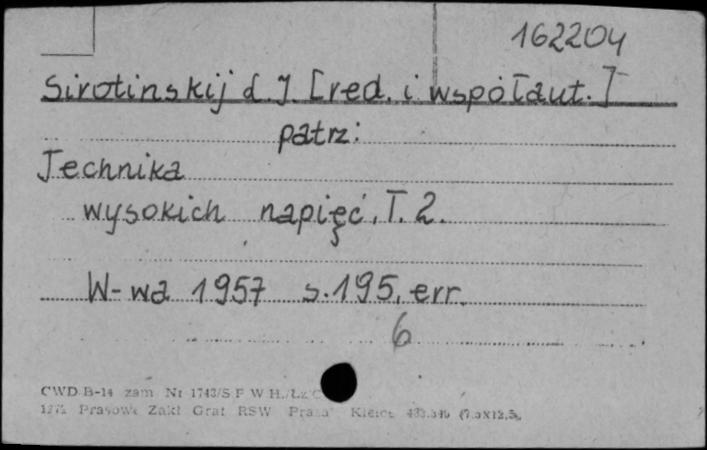 162204
Sirotinskij L. I. [red. i współaut.]
patrz:
Technika
wysokich napięć. T. 2.
W-wa 1957 s. 195, err.
6
CWD B-14 zam Nr 1743/S F W H.
Prasowe Zakł Graf RSW "Prasa" Kielce